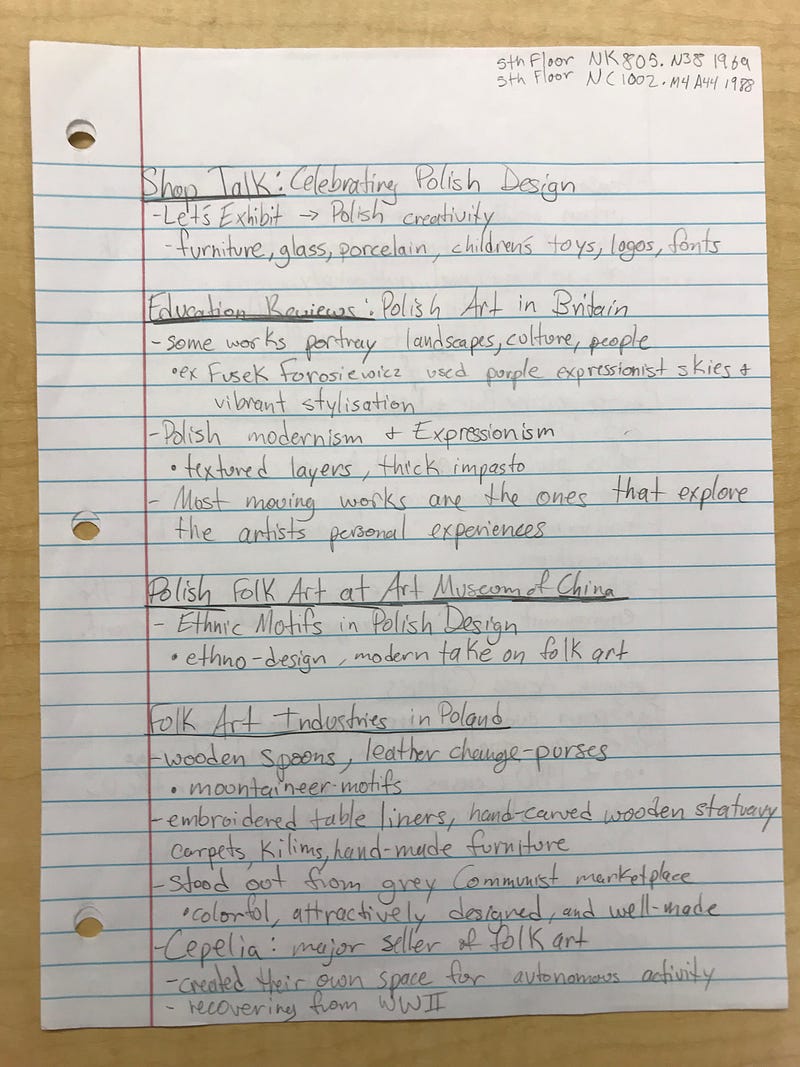 5th Floor NK805.N38 1969
5th Floor NC1002.M4 A44 1988
Shop Talk: Celebrating Polish Design
-Let's Exhibit → Polish creativity
-furniture, glass, porcelain, children's toys, logos, fonts
Education Reviews: Polish Art in Britain
-some works portray landscapes, culture, people
•ex Fusek Forosiewicz used purple expressionist skies &
vibrant stylisation
-Polish modernism & Expressionism
•textured layers, thick impasto
- Most moving works are the ones that explore
the artists personal experiences
Polish Folk Art at Art Museum of China
- Ethnic Motifs in Polish Design
•ethno-design, modern take on folk art
Folk Art Industries in Poland
-wooden spoons, leather change-purses
•mountaineer-motifs
-embroidered table liners, hand-carved wooden statuary
carpets, kilims, hand-made furniture
-stood out from grey Communist marketplace
•colorful, attractively designed, and well-made
-Cepelia: major seller of folk art
-created their own space for autonomous activity
- recovering from WWII